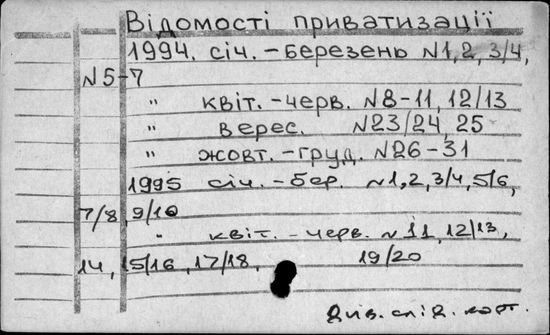 Відомості приватизації
1994. січ. – березень N1, 2, 3/4,
N5-7
" квіт. – черв. N8-11, 12/13
" верес. N23/24, 25
" жовт. – груд. N26-31
1995 січ. – бер. N1, 2, 3/4, 5/6,
7/8, 9/10
" квіт. – черв. N11, 12/13,
14, 15/16, 17/18, 19/20
Див. слід. карт.